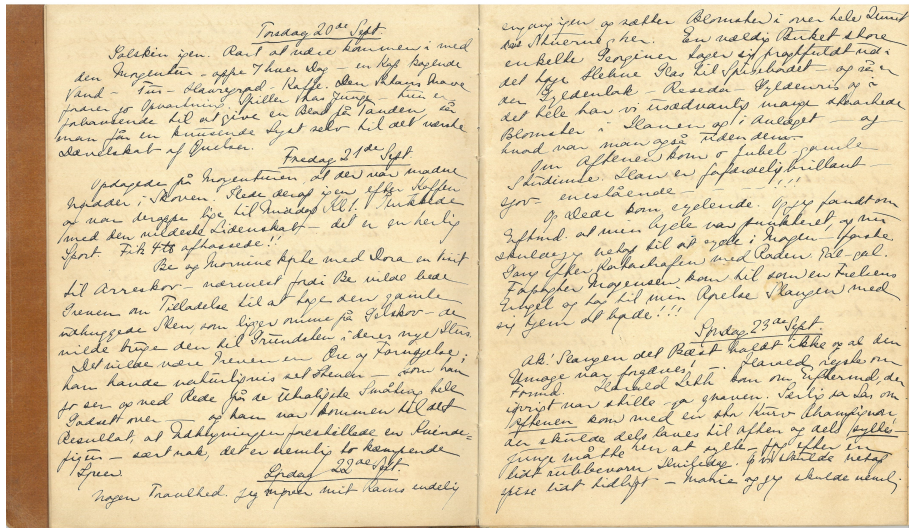 Torsdag 20de Sept.
Solskin igen. Rart at være kommen i med
den Morgentur - oppe 7 hver Dag - en Kop kogende
Vand - Tur - Havregrød - Kaffe. Den Satans Mave
fordrer jo Opvartning. Spiller thar Junge - hun er
forbausende til at give en Blod på Tanden så
man får en knusende Lyst selv til det værste
Djævelskab af Øvelser.
Fredag 21de Sept
Opdagede på Morgenturen, at der var modne
Nødder i Skoven. Stede derop igen efter Kaffen
og var deroppe lige til Middag Kl 1. Plukkede
med den vildeste Lidenskab - det er en herlig
Sport. Fik 4 afhassede!!
Be og Mornine kørte med Dora en Visit
til Arreskov - nærmest fordi Be vilde bede
Greven om Tilladelse til at tage den gamle
udhuggede Sten, som ligger omme på Gelskov - de
vilde bruge den til Grundsten i deres nye Hus.
Det vilde være Greven en Ære og Fornøjelse;
han kande naturligvis set Stenen - som han
jo ser op og ned Rede på de ubetydeligste Småting hele
Godset over - og han var kommen til det
Resultat, at Udhugningen forestillede en Kvinde-
figur - sært nok, det er nemlig to kæmpende
Løver
Lørdag 22de Sept
Nogen Travlhed. Jeg vasker mit Kams endelig
engang igen og sætter Blomster i over hele
Stuerne her. En vældig Buket store
enkelte Georginer tager sig pragtfuldt ud i
det høje Hehne Glas til Spisebordet - og så er
der Gyldenlak - Reseda - Gyldenris og i
det hele har vi usædvanlig mange storartede
Blomster i Haven og i Anlæget - og
hvad var man også uden dem.
Om Aftenen kom o Jubel - gamle
Skridinse. Han er forfærdelig brillant -
sjov - enestående - !!!
Og Dede kom cyclende. Og jeg fandt om
Efterm. at min Cycle var punkteret og nu
skulde jeg netop til at cycle i Morgen - første
Gang efter Katastrofen med Roden. Gal - gal.
Forpagter Mogensen kom til som en Frelsens
Engel og tog til min Ravelse Slangen med
sig hjem at bøde!!!
Søndag 23de Sept.
Ak! Slangen det Bæst holdt ikke og al den
Umage var forgæves! - . Harald rejste om
Formd. Harald Leth kom om Efterm, der
iøvrigt var stille - ja gnaven. Særlig da Las om
Aftenen kom med en stor Kurv Champignon
der skulde dels laves til aften og dels sylte -
Junge måtte hen at sylte - for efter en
lidt rubbevorn - vi skulde netop
spise lidt tidligt - Marie og jeg skulde nemlig